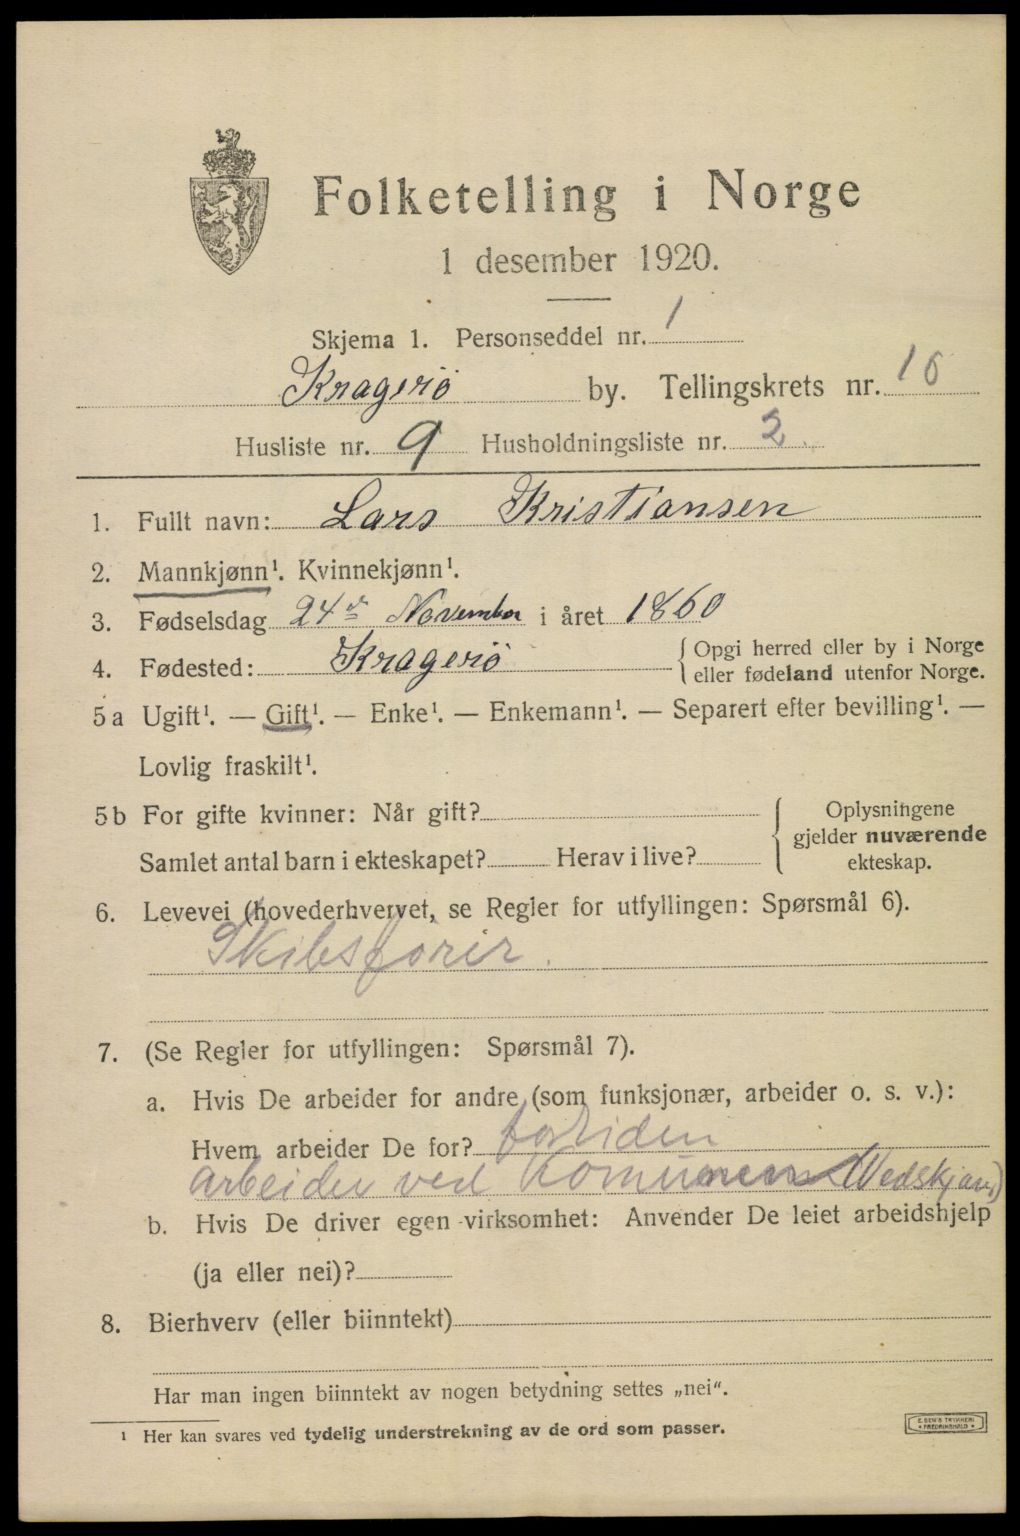 Folketelling i Norge
1 desember 1920.
Skjema 1. Personseddel nr. 1
Kragerö by. Tellingskrets nr. 10
Husliste nr. 9 Husholdningsliste nr. 2
1. Fullt navn: Lars Kristiansen
2. Mannkjønn¹. Kvinnekjønn¹.
3. Fødselsdag 24de November i året 1860
4. Fødested: Kragerö {Opgi herred eller by i Norge
eller fødeland utenfor Norge.
5a Ugift¹. — Gift¹. — Enke¹. — Enkemann¹. — Separert efter bevilling¹. —
Lovlig fraskilt¹.
5b For gifte kvinner: Når gift? Oplysningene
gjelder nuværende
Samlet antal barn i ekteskapet? Herav i live? ekteskap.
6. Levevei (hovederhvervet, se Regler for utfyllingen: Spørsmål 6).
Skibsförir.
7. (Se Regler for utfyllingen: Spørsmål 7).
a. Hvis De arbeider for andre (som funksjonær, arbeider o. s. v.):
Hvem arbeider De for? fortiden
arbeider ved Komunens Vedskjar)
b. Hvis De driver egen virksomhet: Anvender De leiet arbeidshjelp
(ja eller nei)?
8. Bierhverv (eller biinntekt)
Har man ingen biinntekt av nogen betydning settes „nei“.
¹ Her kan svares ved tydelig understrekning av de ord som passer.
E. SEM'S TRYKKERI
FREDRIKSHALD